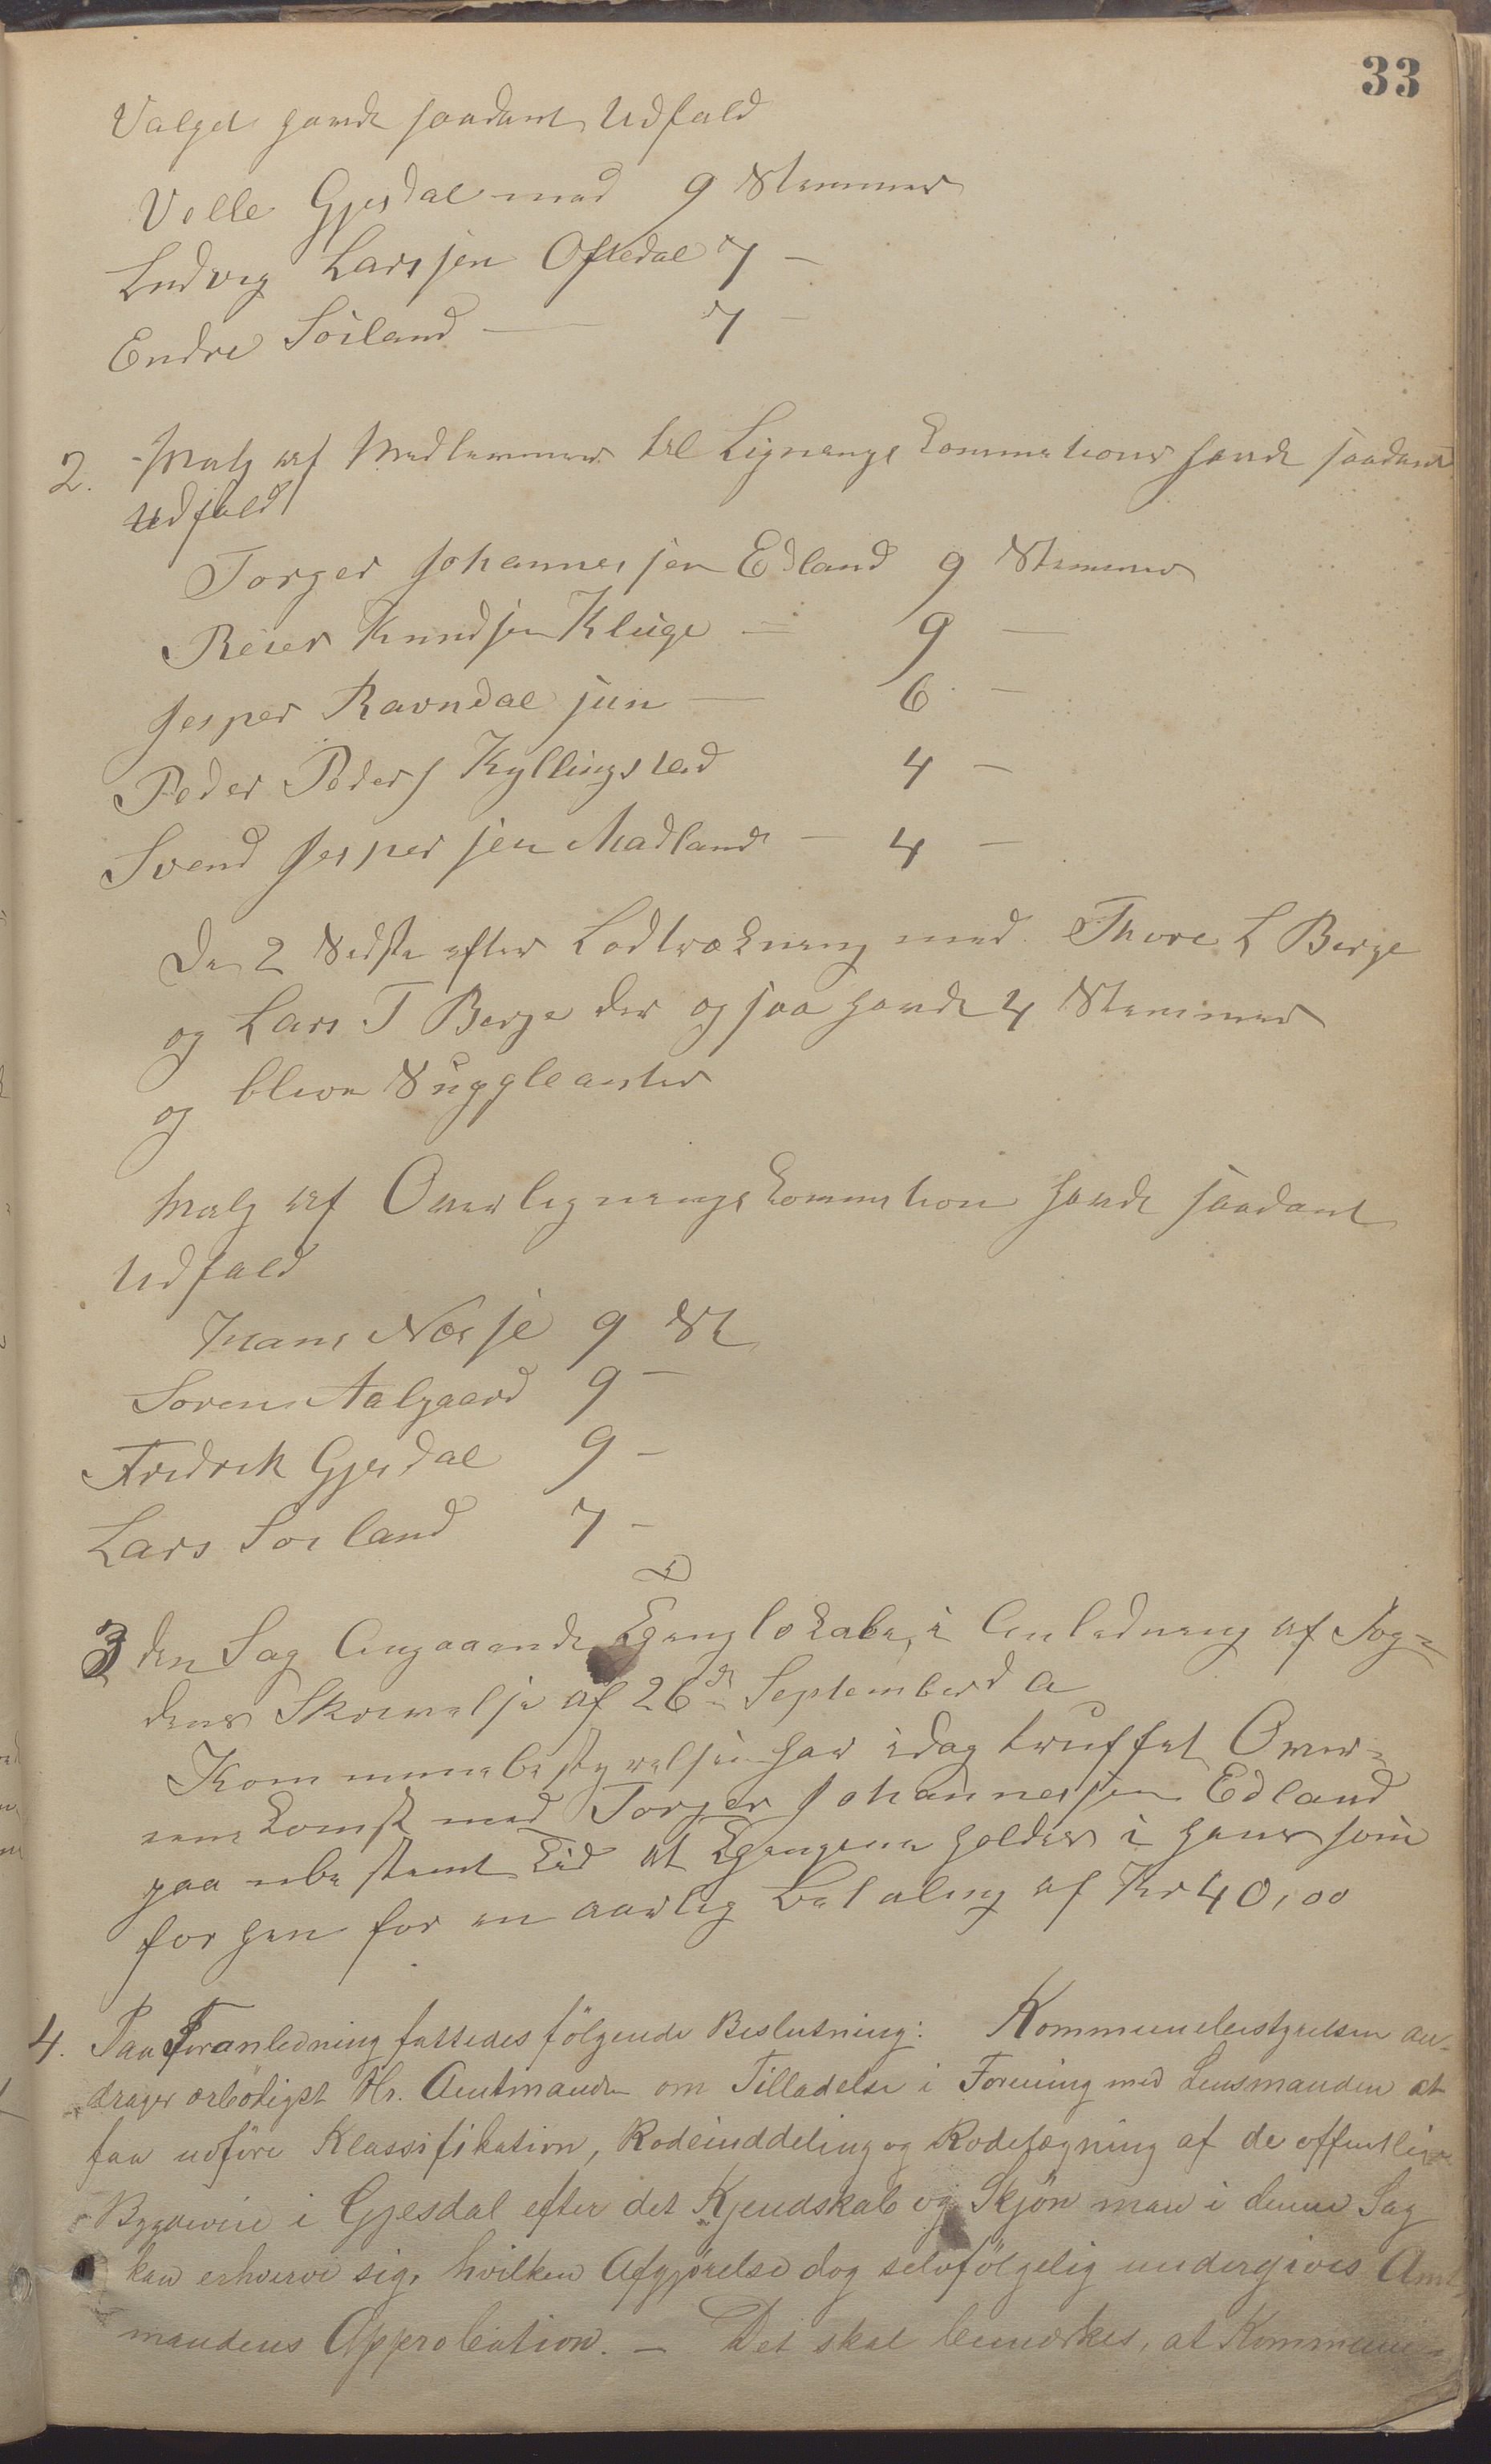 33
Valget havde saadant Udfald
Velle Gjesdal med 9 Stemmer
Ludvig Larssen Oftedal 7 —
Endre Soiland — 7 —
2. Valg af Medlemmer til Lignings kommisionen havde saadant
Udfald
Torger Johannessen Edland 9 Stemmer
Reier Knudsen Kluge — 9 —
Jesper Ravndal jun — 6 —
Peder Peders Kyllingstad 4 —
Svend Jespersen Madland — 4 —
De 2 Sidste efter Lodtrækning med Thore L Berge
og Lars T Berge der ogsaa havde 4 Stemmer
og blive Suppleanter
Valg af Overlignings kommission havde saadant
Udfald
Hans Næsje 9 St
Soren Aalgaard 9 —
Fredrik Gjesdal 9 —
Lars Soiland 7 —
3 den Sag Angaaende Thinglokale, i Anledning af Fog-
dens Skrivelse af 26de September d A
Kommunebestyrelsen har idag truffet Over-
enskomst med Torger Johannessen Edland
paa ubestemt Tid at Thingene holdes i hans
for ham for en aarlig Betaling af Kr 40,00
4. Paa Foranledning fattedes følgende Beslutning: Kommunebestyrelsen an-
drager ærbödigst Hr. Amtmanden om Tilladelse i Forening med Lensmanden at
faa udföre Klassifikation, Rodeinddeling og Rodelægning af de offentlige
Bygdeveie i Gjesdal efter det Kjendskab og Skjön man i denne Sag
kan erhverve sig, hvilken Afgjörelse dog selvfölgelig undergives Amt-
mandens Approbation. — Det skal bemærkes, at Kommune-